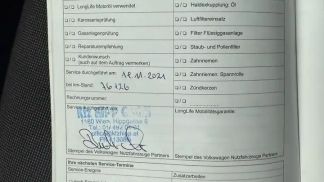 LongLife Motoröl verwendet
Haldexkupplung: Öl
Karosserieprüfung
Luftfiltereinsatz
Gasanlagenprüfung
Filter Flüssiggasanlage
Reparaturempfehlung
Staub- und Pollenfilter
Kundenwunsch
(auch auf dem Auftrag vermerken)
Zahnriemen
Service durchgeführt am: 18.11.2021
Zahnriemen: Spannrolle
bei km-Stand: 76126
Zündkerzen
Rechnungsnummer:
Service durchgeführt von:
LongLife Mobilitätsgarantie:
1160 Wien,
Stempel des Volkswagen Nutzfahrzeuge Partners
Stempel des Volkswagen Nutzfahrzeuge Partners
Ihre nächsten Service-Termine
Service Ereignis
Zusatzarbeiten